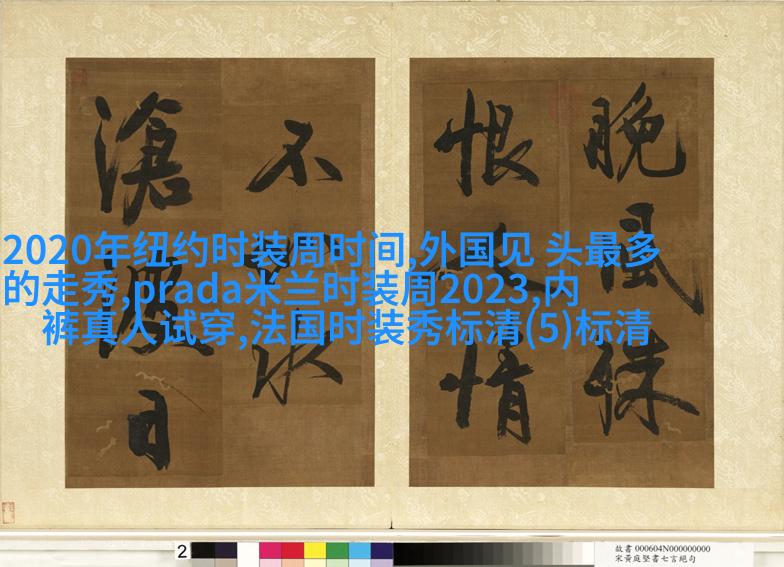 晚風殊
恨情
不水
滄波日
2020年纽约时装周时间,外国见 头最多
的走秀,prada米兰时装周2023,内
裤真人试穿,法国时装秀标清(5)标清
2
故書 000604N000000000
宋黃庭堅七言絕句